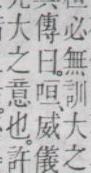 必無訓大之
其傳曰咺威儀
大之意也許